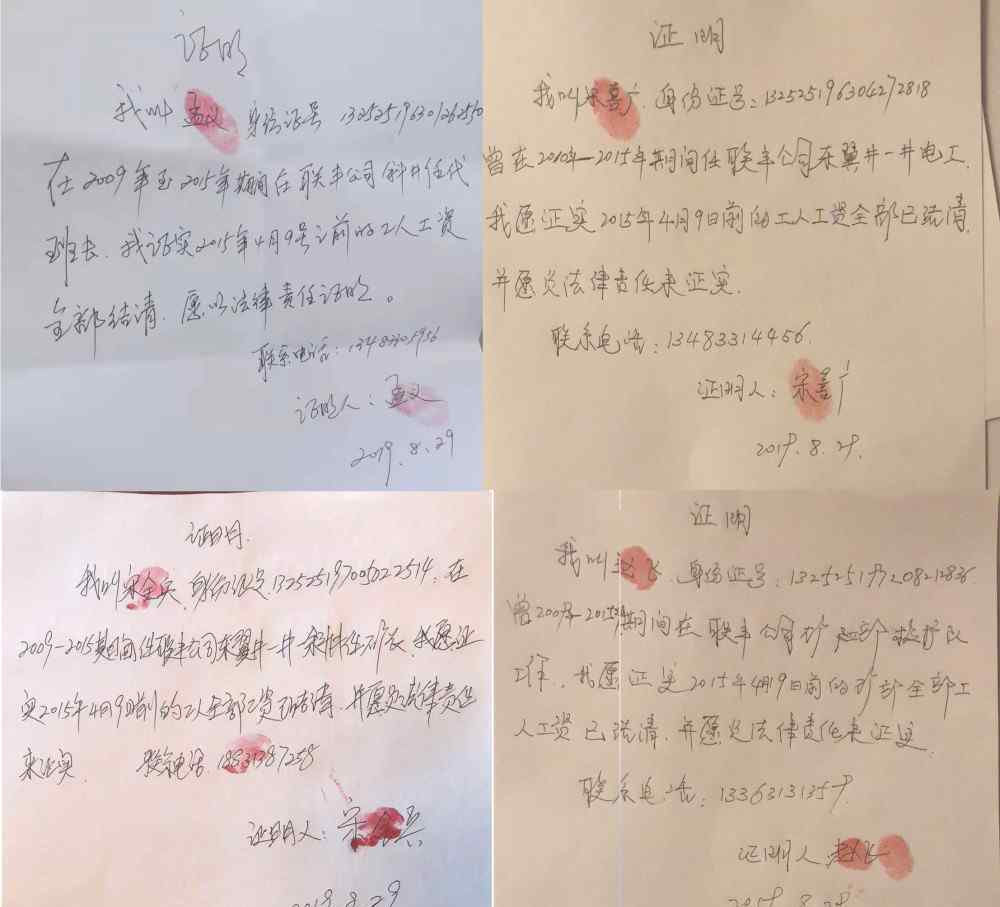 证明
我叫孟义 身份证号 132525196301262550
在2009年至2015年期间在联丰公司斜井任代
班长、我证实2015年4月9号之前的工人工资
全部结清、愿以法律责任证明。
联系电话:13483305956
证明人:孟义
2019.8.29
证明
我叫宋喜广、身份证号:132525196304272818
曾在2010年—2015年期间任联丰公司东翼井一井电工.
我愿证实2015年4月9日前的工人工资全部已结清,
并愿负法律责任来证实.
联系电话:13483314456.
证明人:宋喜广
2019.8.29.
证明.
我叫宋全兵、身份证号:132525197005022514、在
2009-2015期间任联丰公司东翼井一井 矿长、我愿证
实2015年4月9日前的工人全部工资已结清.并愿负法律责任
来证实. 联系电话
证明人:宋全兵
2019.8.29
证明
我叫赵飞、身份证号:132525197208212836
曾2009年—2015年期间在联丰公司矿 部 护队
工作、我愿证实2015年4月9日前的矿部全部工
人工资已结清.并愿负法律责任来证实.
联系电话:13363131359.
证明人 赵飞
2019.8.29